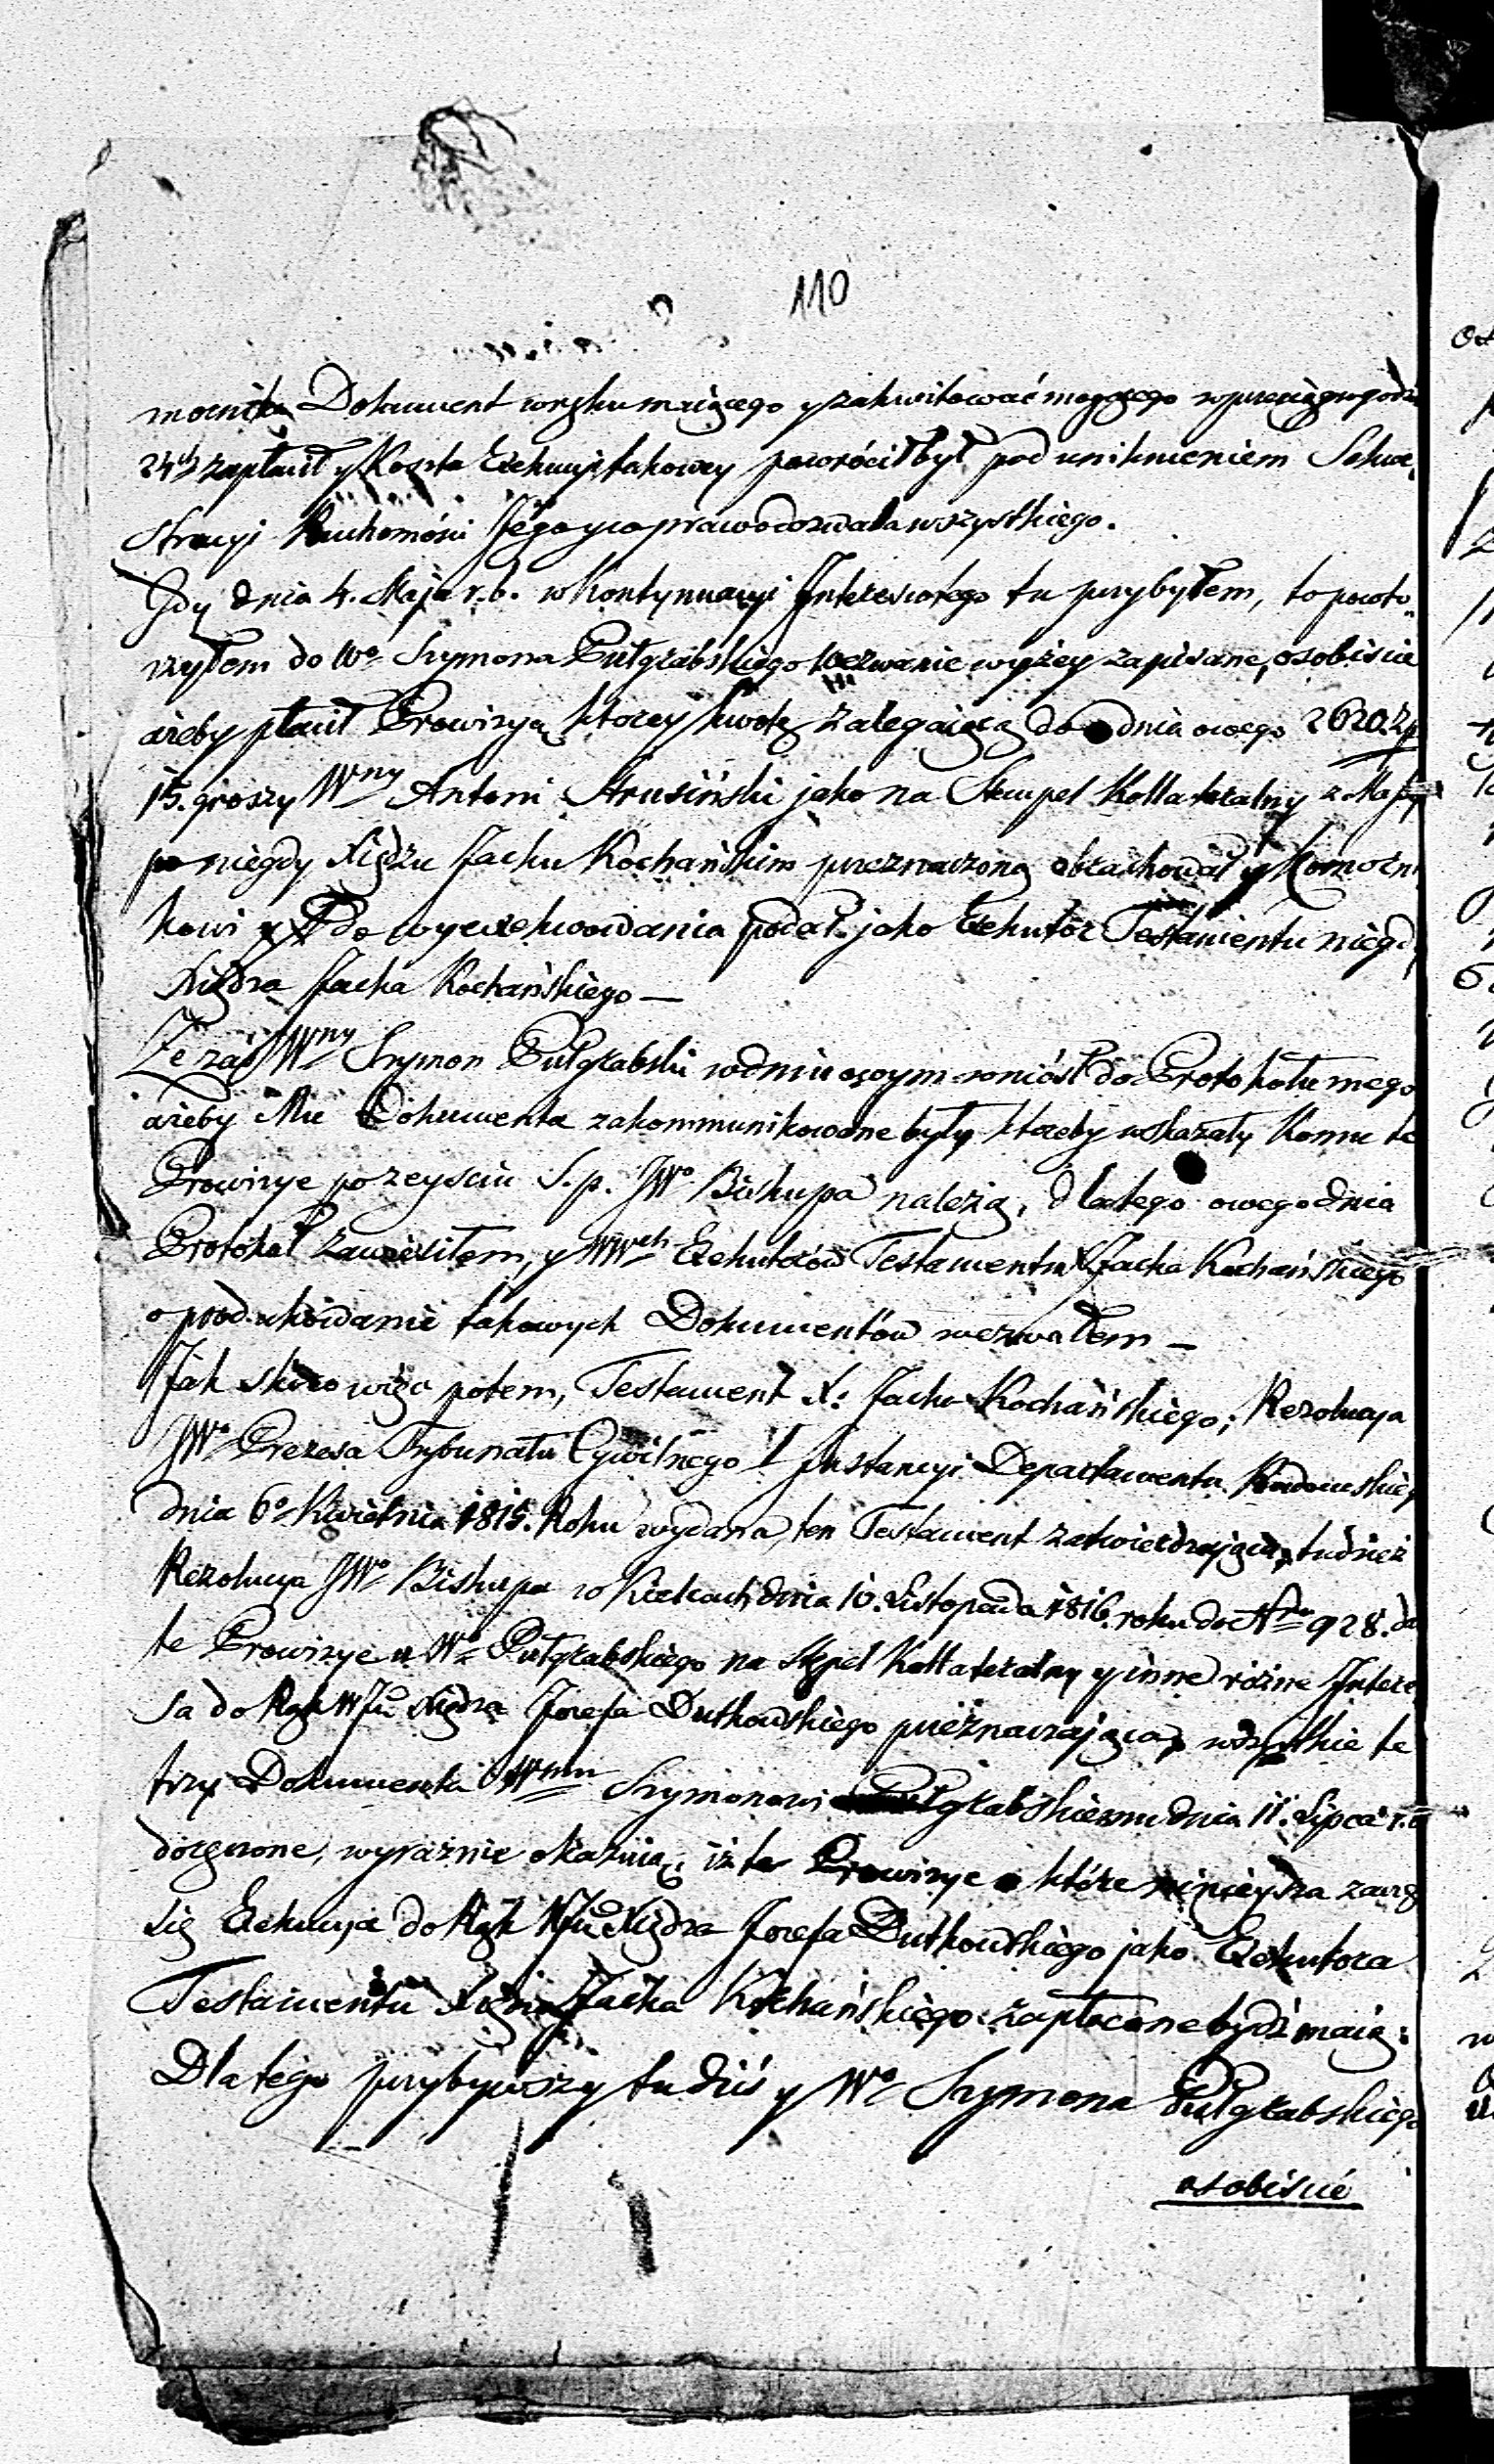 110
mocnika Dokument w ręku maiącego y zakwitować mogącego w przeciągu godzin
24ch zapłacił y Koszta Exekucyi takowey powrócił był pod uniknieniem Sekwe„
stracyi Ruchomości Jego y co prawo dozwala wszystkiego.
Gdy dnia 4. Maja r. b. w kontynuacyi Interesu tego tu przybyłem, to powtó„
rzyłem do Wo Szymona Pułgrabskiego Wezwanie wyżey zapisane, osobiście
ażeby płacił Prowizyą ktorey kwotę zalegaiącą do dnia owego 2620. Zp
15. groszy Wny Antoni Strusiński jako na Stempel Kollateralny z Massy
po niegdy Xiędzu Jacku Kochańskim przeznaczoną obrachował y Komorni
kowi do wyexekwowania podał jako Exekutor Testamentu niegdy
Xiędza Jacka Kochańskiego —
Że zaś Wny Szymon Pułgrabski w dniu owym wniósł do Protokołu mego
ażeby Mu Dokumenta zakommunikowane były, ktoreby wskazały Komu te
Prowizye po zeyściu S. p. JWo Biskupa należą, dla tego owego dnia
Protokół zawiesiłem, y WWch Exekutorów Testamentu X Jacka Kochańskiego
o produkowanie takowych Dokumentów wezwałem —
Jak skoro więc potem, Testament X. Jacka Kochańskiego; Rezolucya
JWo Prezesa Trybunału Cywilnego I Instancyi Departamentu Radomskiego
dnia 6o Kwietnia 1815. Roku wydana, ten Testament zatwierdzaiąca, tudzież
Rezolucya JWo Biskupa w Kielcach dnia 10. Listopada 1816. roku do Nro 928. da
te Prowizye u Wo Pułgrabskiego na Stępel Kollateralny y inne różne Intere
sa do Rąk Xiędza Jozefa Dutkowskiego przeznaczaiąca, wszystkie te
trzy Dokumenta Wmu Szymonowi Pułgrabskiemu dnia 11. Lipca r. b
doręczone, wyraźnie okazuią; iż te Prowizye o które ninieysza zaczę
się Exekucya do Rąk Xiędza Jozefa Dutkowskiego jako Exekutora
Testamentu Xiędza Jacka Kochańskiego zapłacone bydź maią:
Dla tego przybywszy tu dziś y Wo Szymona Pułgrabskiego
osobiście